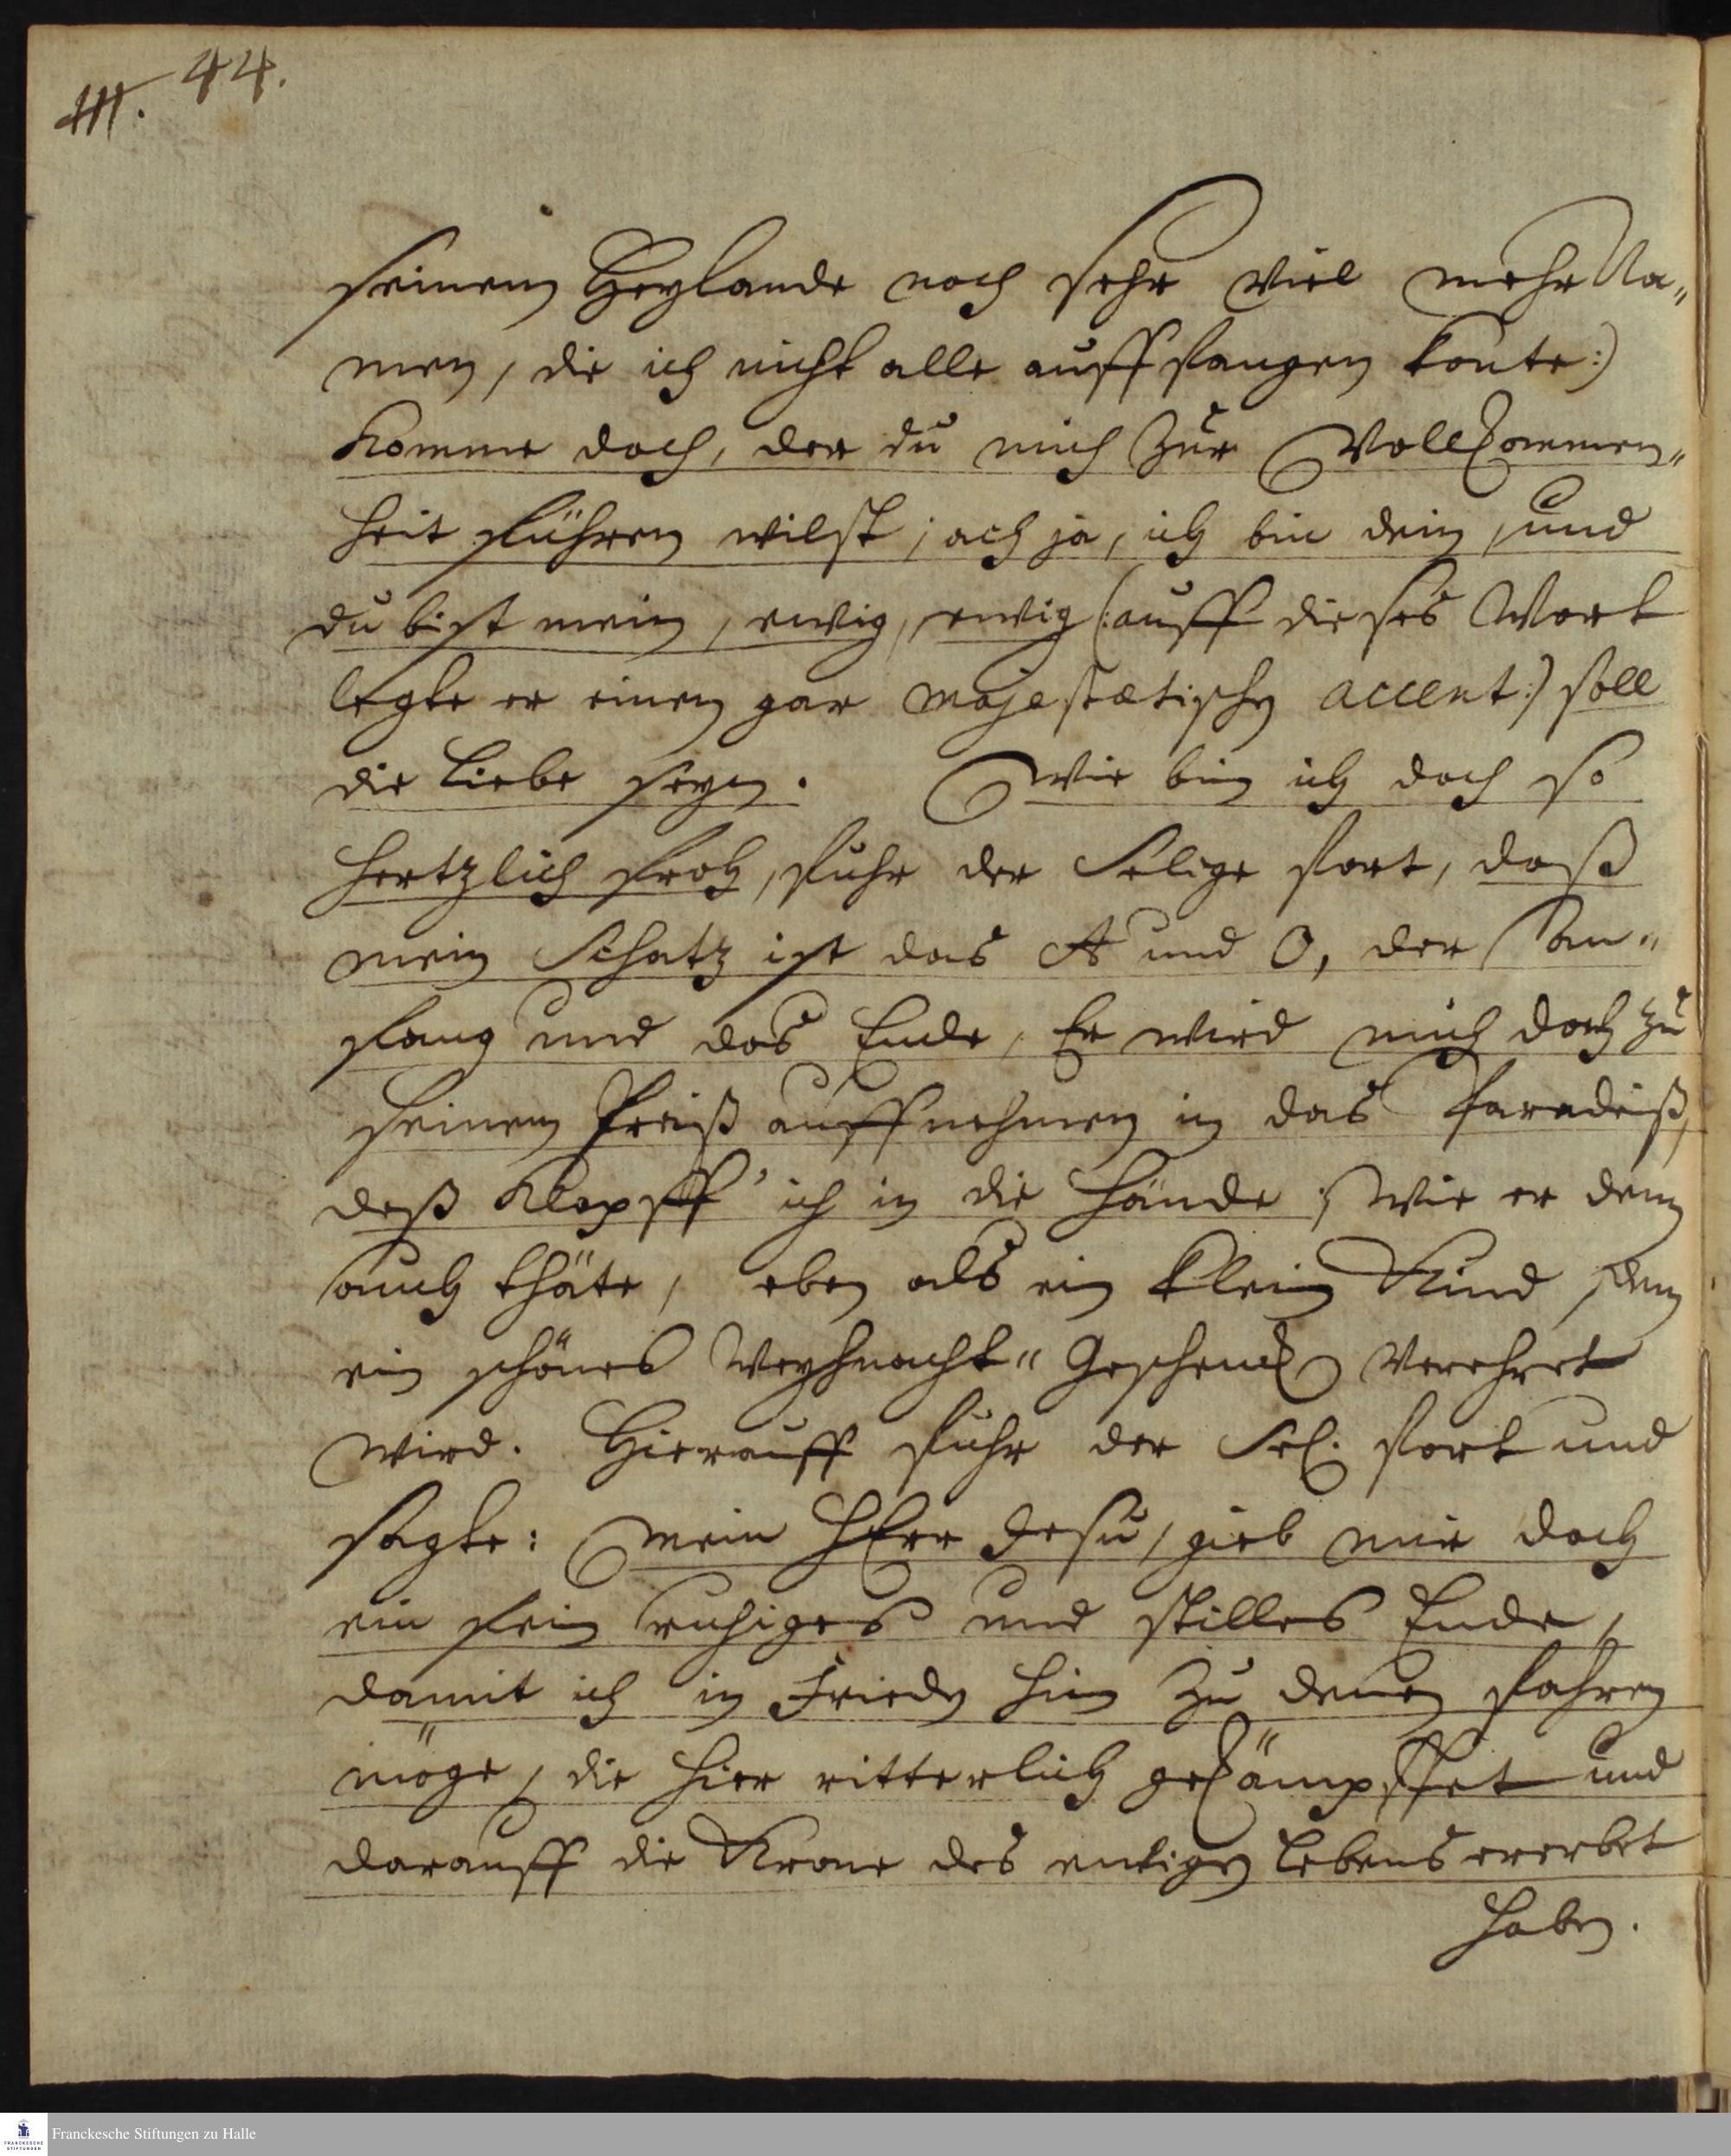 44.
seinem Heylande noch sehr viel mehr Na„
men, die ich nicht alle auffangen konte:)
Komme doch, der du mich zur Vollkommen„
heit führen wilst; ach ja, ich bin dein, und
du bist mein, ewig, ewig (:auff dieses Wort
legte er einen gar majestætischen accent:) soll
die Liebe seyn. Wie bin ich doch so
hertzlich froh, fuhr der Selige fort, daß
mein Schatz ist das A und O, der An„
fang und das Ende, Er wird mich doch zu
seinem Preiß auffnehmen in das Paradeiß,
deß klopff' ich in die Hände; Wie er denn
auch thäte, eben als ein klein Kind, dem
ein schönes Weyhnacht„ Geschenck verehret
wird. Hierauff fuhr der Sel. fort und
sagte: Mein HErr Jesu, gieb mir doch
ein fein ruhiges und stilles Ende,
damit ich in Frieden hin zu denen fahren
möge, die hier ritterlich gekämpffet und
darauff die Krone des ewigen Lebens ererbet
haben.
Franckesche Stiftungen zu Halle
FRANCKESCHE
STIFTUNGEN